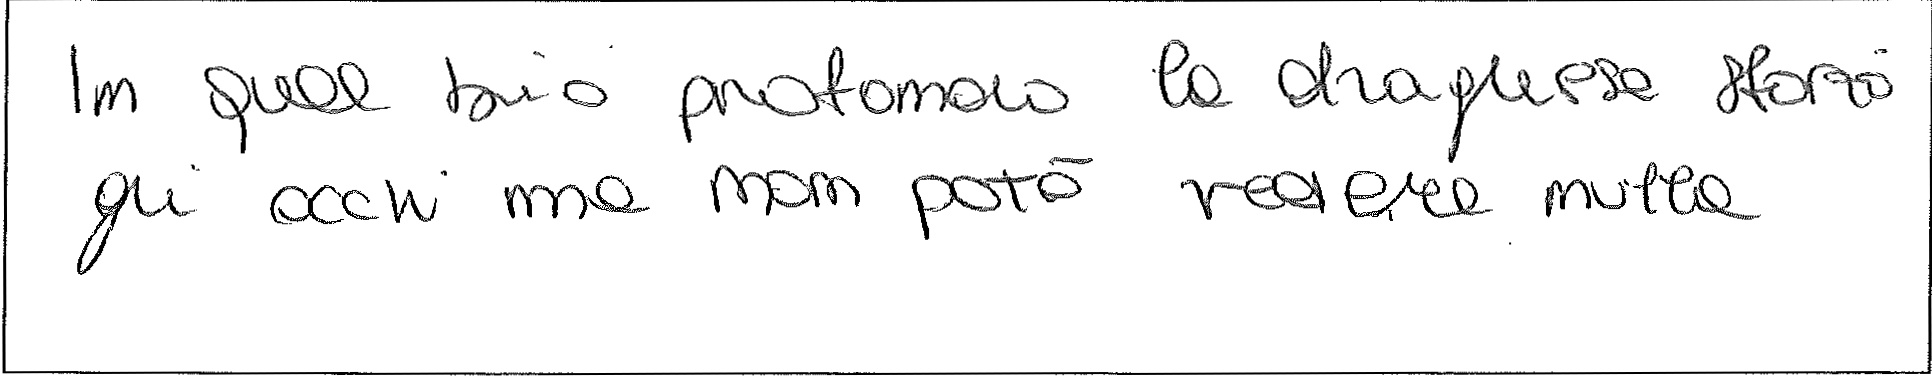 In quel buio profondo la draghessa sforzò
gli occhi ma non potò vedere nulla